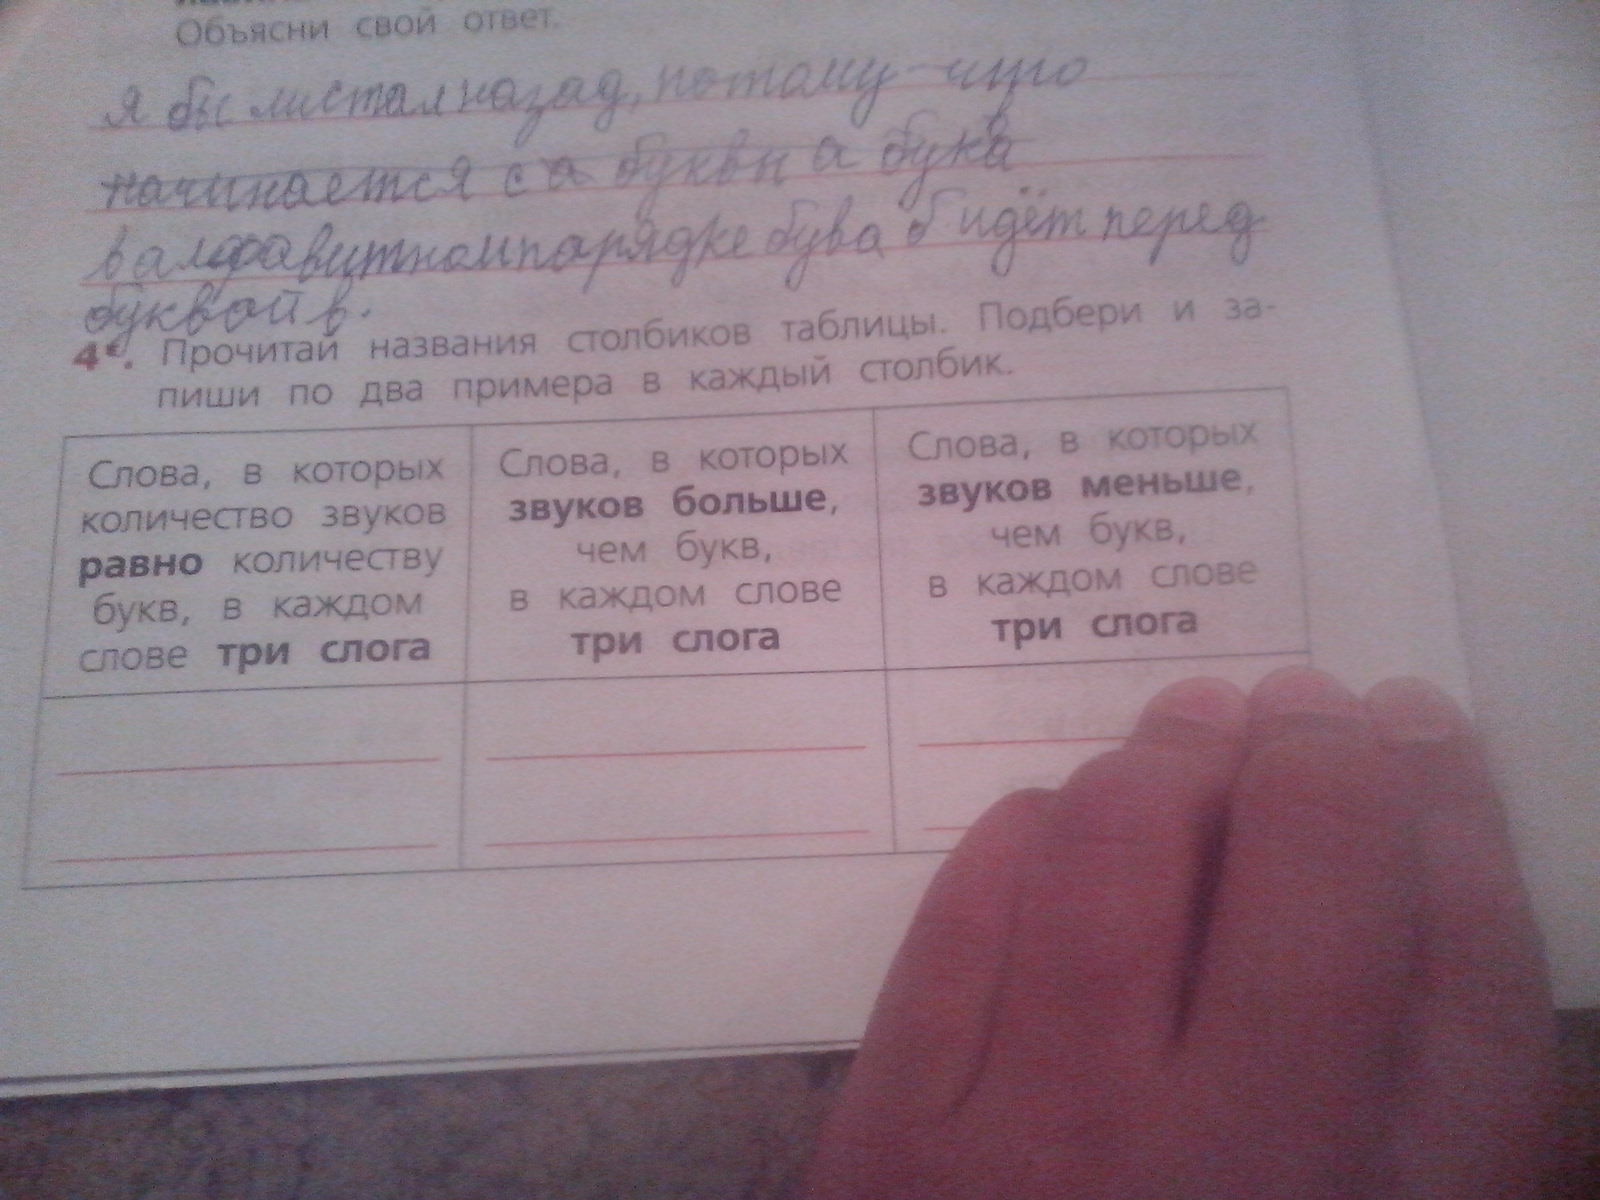 Объясни свой ответ.
Я бы листал назад, потому-что
начинается с а буквы а букв
в алфавитном парядке бува б идёт перед
буквой в.
4*. Прочитай названия столбиков таблицы. Подбери и за-
пиши по два примера в каждый столбик.
Слова, в которых
количество звуков
равно количеству
букв, в каждом
слове три слога
Слова, в которых
звуков больше,
чем букв,
в каждом слове
три слога
Слова, в которых
звуков меньше,
чем букв,
в каждом слове
три слога